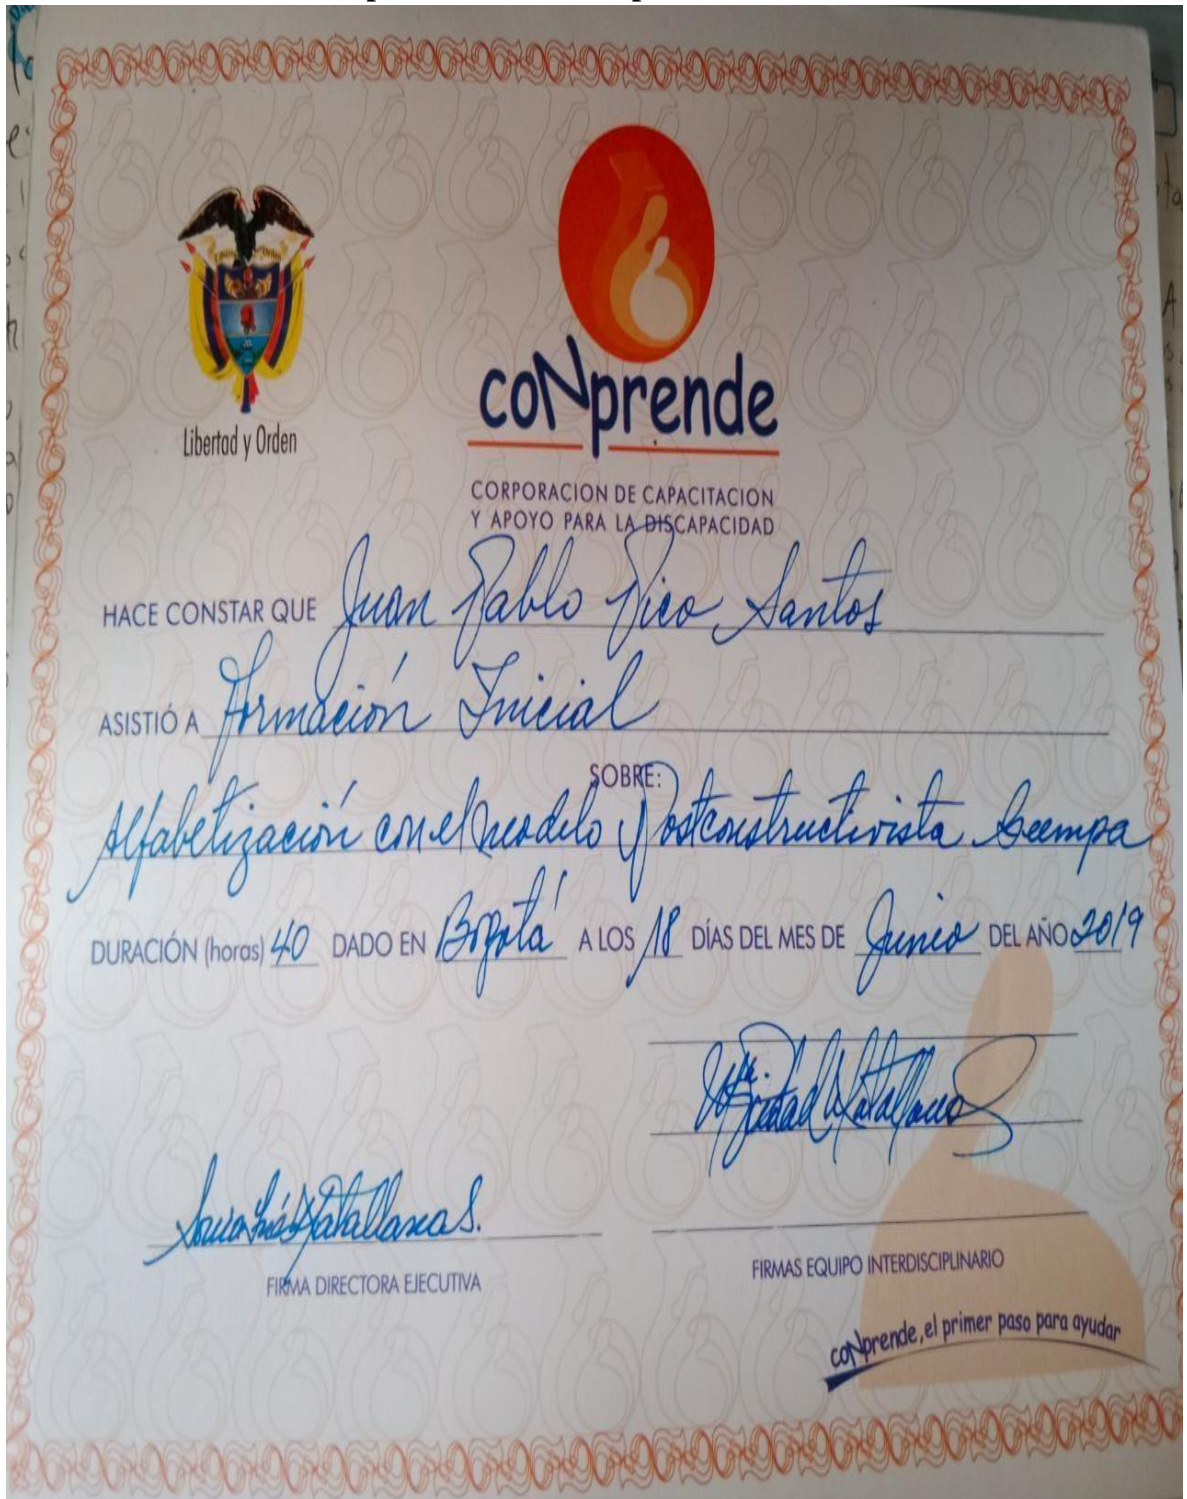 Libertad y Orden
coNprende
CORPORACION DE CAPACITACION
Y APOYO PARA LA DISCAPACIDAD
HACE CONSTAR QUE Juan Pablo Pico Santos
ASISTIÓ A Formación Inicial
SOBRE:
Alfabetización con el modelo Postconstructivista Geempa
DURACIÓN (horas) 40 DADO EN Bogotá A LOS 18 DÍAS DEL MES DE Junio DEL AÑO 2019
FIRMA DIRECTORA EJECUTIVA
FIRMAS EQUIPO INTERDISCIPLINARIO
coNprende, el primer paso para ayudar